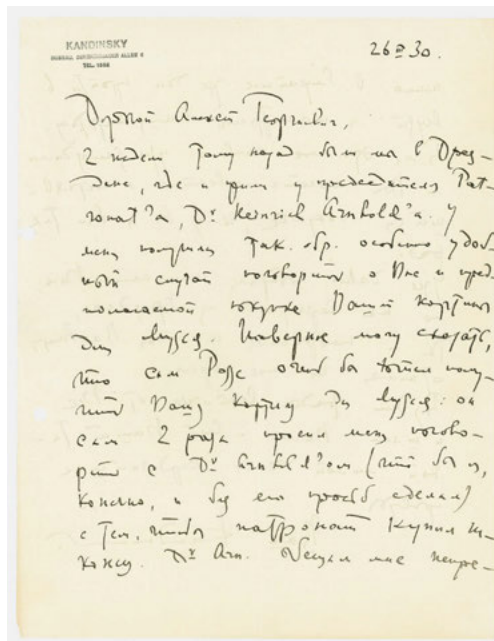 KANDINSKY
DESSAU, BURGKÜHNAUER ALLEE 6
TEL.
26 30.
Дорогой Алексей Георгиевич,
2 недели тому назад были мы в Дрез-
дене, где и жили у председателя Pat-
ronat'a, Dr Heinrich Arnhold'a. У
меня получился так. обр. особенно удоб-
ный случай поговорить о Вас и пред-
полагаемой покупке Вашей картины
для музея. Наверное могу сказать,
что сам Posse очень бы хотел полу-
чить Вашу картину для музея: он
сам 2 раза просил меня погово-
рить с Dr Arnhold'ом (что бы я,
конечно, и без его просьб сделал)
с тем, чтобы патронат купил
Dr Arn. обещал мне непре-